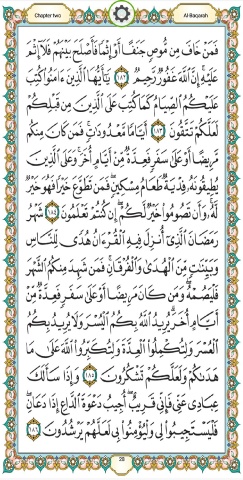 Chapter two
Al-Baqarah
فَمَنْ خَافَ مِن مُّوصٍ جَنَفًا أَوْ إِثْمًا فَأَصْلَحَ بَيْنَهُمْ فَلَا إِثْمَ
عَلَيْهِ إِنَّ اللَّهَ غَفُورٌ رَّحِيمٌ ١٨٢ يَا أَيُّهَا الَّذِينَ ءَامَنُوا كُتِبَ
عَلَيْكُمُ الصِّيَامُ كَمَا كُتِبَ عَلَى الَّذِينَ مِن قَبْلِكُمْ
لَعَلَّكُمْ تَتَّقُونَ ١٨٣ أَيَّامًا مَّعْدُودَاتٍ فَمَن كَانَ مِنكُم
مَّرِيضًا أَوْ عَلَى سَفَرٍ فَعِدَّةٌ مِّنْ أَيَّامٍ أُخَرَ وَعَلَى الَّذِينَ
يُطِيقُونَهُ فِدْيَةٌ طَعَامُ مِسْكِينٍ فَمَن تَطَوَّعَ خَيْرًا فَهُوَ خَيْرٌ
لَّهُ وَأَن تَصُومُوا خَيْرٌ لَّكُمْ إِن كُنتُمْ تَعْلَمُونَ ١٨٤ شَهْرُ
رَمَضَانَ الَّذِي أُنزِلَ فِيهِ الْقُرْءَانُ هُدًى لِّلنَّاسِ
وَبَيِّنَاتٍ مِّنَ الْهُدَى وَالْفُرْقَانِ فَمَن شَهِدَ مِنكُمُ الشَّهْرَ
فَلْيَصُمْهُ وَمَن كَانَ مَرِيضًا أَوْ عَلَى سَفَرٍ فَعِدَّةٌ مِّنْ
أَيَّامٍ أُخَرَ يُرِيدُ اللَّهُ بِكُمُ الْيُسْرَ وَلَا يُرِيدُ بِكُمُ
الْعُسْرَ وَلِتُكْمِلُوا الْعِدَّةَ وَلِتُكَبِّرُوا اللَّهَ عَلَى مَا
هَدَاكُمْ وَلَعَلَّكُمْ تَشْكُرُونَ ١٨٥ وَإِذَا سَأَلَكَ
عِبَادِي عَنِّي فَإِنِّي قَرِيبٌ أُجِيبُ دَعْوَةَ الدَّاعِ إِذَا دَعَانِ
فَلْيَسْتَجِيبُوا لِي وَلْيُؤْمِنُوا بِي لَعَلَّهُمْ يَرْشُدُونَ ١٨٦
28